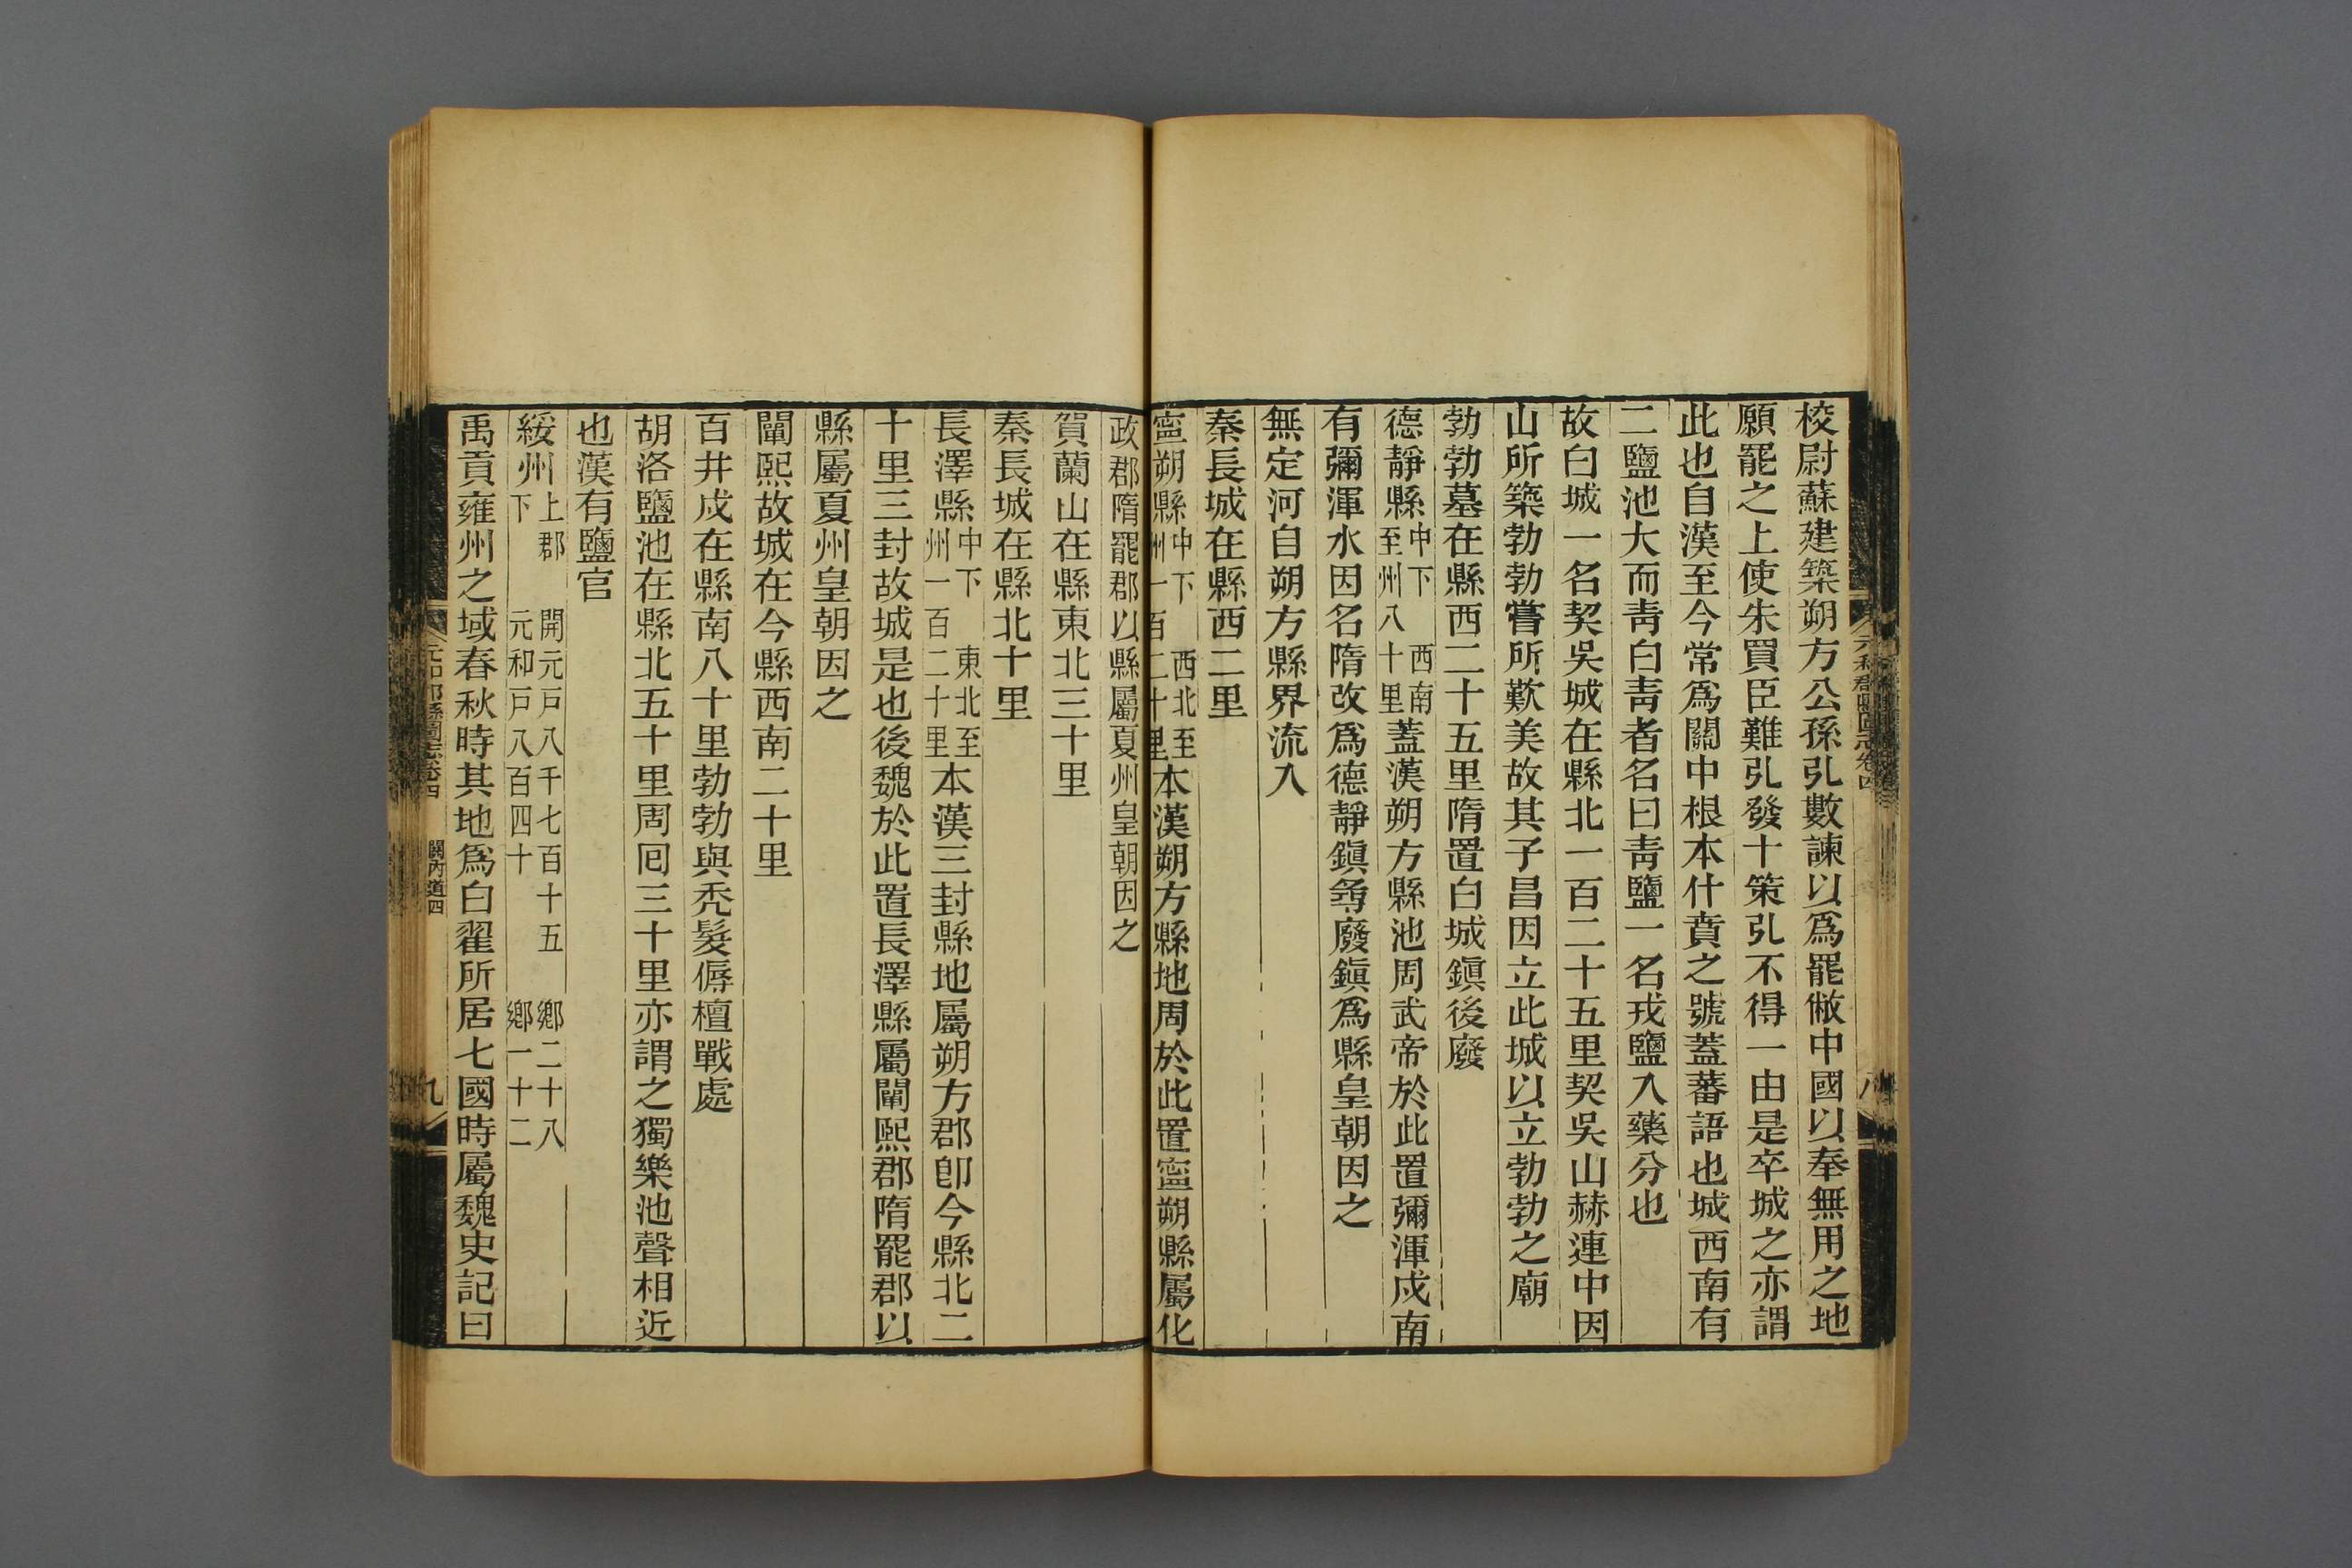 校尉蘇建築朔方公孫弘數諫以爲罷敝中國以奉無用之地
願罷之上使朱買臣難弘發十策弘不得一由是卒城之亦謂
此也自漢至今常爲關中根本什賁之號蓋蕃語也城西南有
二鹽池大而靑白靑者名曰靑鹽一名戎鹽入藥分也
故白城一名契吳城在縣北一百二十五里契吳山赫連中因
山所築勃勃嘗所歎美故其子昌因立此城以立勃勃之廟
勃勃墓在縣西二十五里隋置白城鎭後廢
德靜縣中下 西南至州八十里蓋漢朔方縣池周武帝於此置彌渾戍南
有彌渾水因名隋改爲德靜鎭尋廢鎭爲縣皇朝因之
無定河自朔方縣界流入
秦長城在縣西二里
寧朔縣中下 西北至州一百二十里本漢朔方縣地周於此置寧朔縣屬化
政郡隋罷郡以縣屬夏州皇朝因之
賀蘭山在縣東北三十里
秦長城在縣北十里
長澤縣中下 東北至州一百二十里本漢三封縣地屬朔方郡卽今縣北二
十里三封故城是也後魏於此置長澤縣屬闡熙郡隋罷郡以
縣屬夏州皇朝因之
闡熙故城在今縣西南二十里
百井戍在縣南八十里勃勃與禿髮傉檀戰處
胡洛鹽池在縣北五十里周囘三十里亦謂之獨樂池聲相近
也漢有鹽官
綏州上郡下 開元戶八千七百十五 鄉二十八 元和戶八百四十 鄉一十二
禹貢雍州之域春秋時其地爲白翟所居七國時屬魏史記曰
元和郡縣圖志卷四
八
元和郡縣圖志卷四 關內道四
九